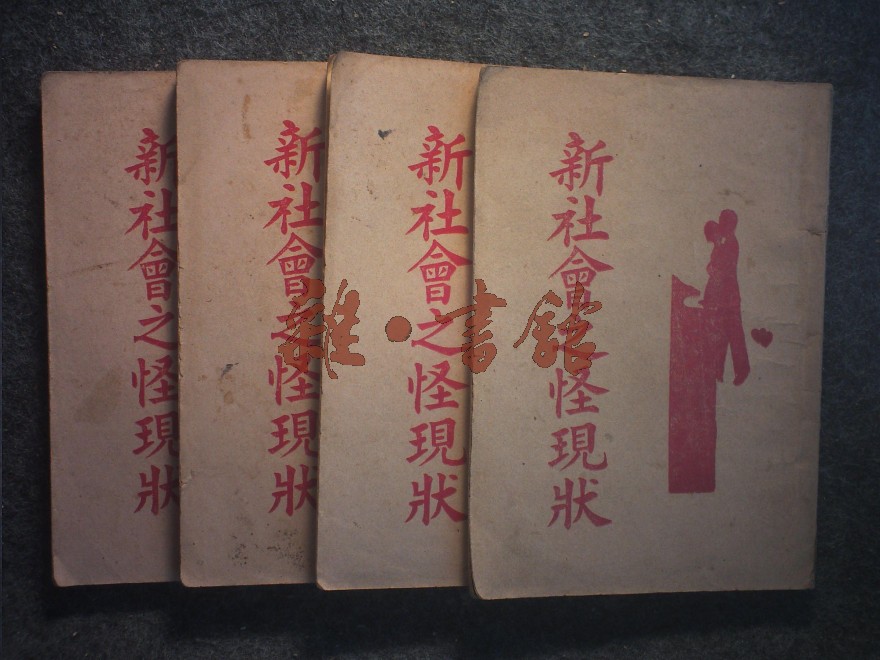 新社會之怪現狀
新社會之怪現狀
新社會之怪現狀
新社會之怪現狀
雜·書館